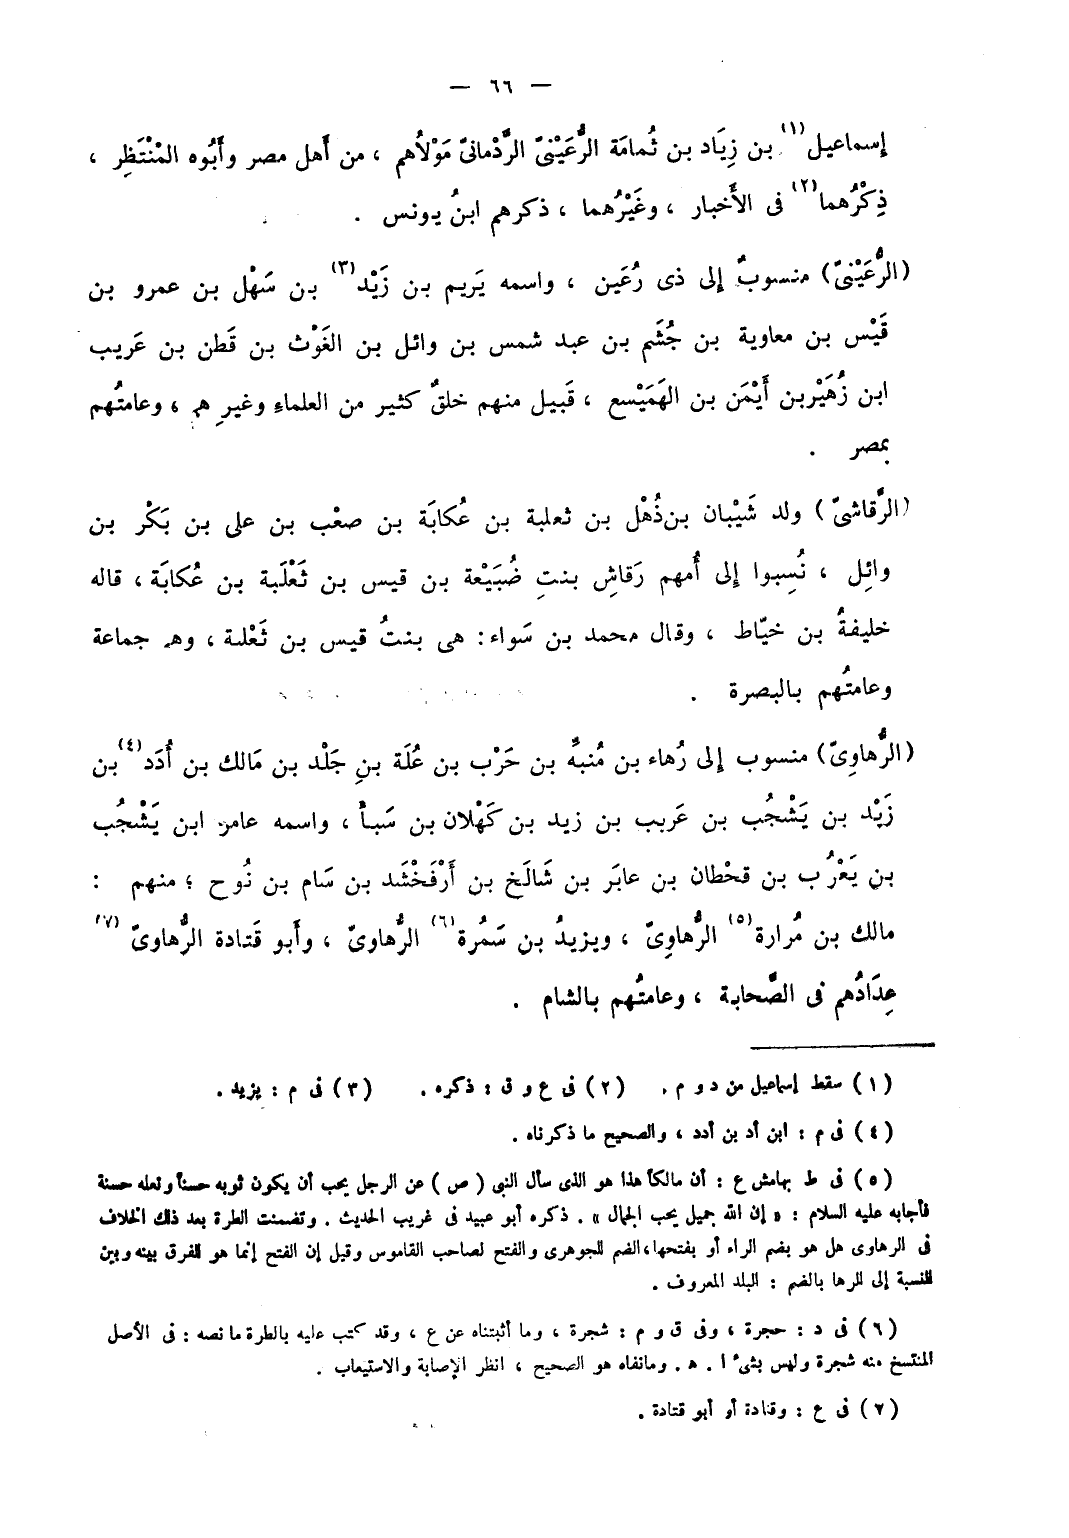 — ٦٦ —
إسماعيل(١) بن زِيَاد بن ثُمامَة الرُّعَيْنىّ الرَّدْمانىّ مَوْلاُهم ، من أَهل مصر وأَبُوه المُنْتَظِر ،
ذِكْرُهما(٢) فى الأَخبار ، وغَيْرُهما ، ذكرهم ابنُ يونس .
(الرُّعَيْنىّ) منسوبٌ إلى ذى رُعَين ، واسمه يَريم بن زَيْد(٣) بن سَهْل بن عمرو بن
قَيْس بن معاوية بن جُشَم بن عبد شمس بن وائل بن الغَوْث بن قَطن بن عَريب
ابن زُهَيْربن أَيْمَن بن الهَمَيْسع ، قَبيل منهم خلقٌ كثير من العلماءِ وغيرِ هم ، وعامتُهم
بمصر .
(الرَّقاشىّ) ولد شَيْبان بن ذُهْل بن ثعلبة بن عُكابَة بن صعْب بن على بن بَكْر بن
وائِل ، نُسِبوا إلى أُمهم رَقاشِ بنتِ ضُبَيْعة بن قيس بن ثَعْلَبة بن عُكابَة ، قاله
خليفةُ بن خيّاط ، وقال محمد بن سَواء : هى بنتُ قيس بن ثَعْلبة ، وهم جماعة
وعامتُهم بالبصرة .
(الرُّهاوِىّ) منسوب إلى رُهاء بن مُنبِّه بن حَرْب بن عُلَة بنِ جَلْد بن مَالك بن أُدَد(٤) بن
زَيْد بن يَشْجُب بن عَريب بن زيد بن كَهْلان بن سَبأ ، واسمه عامر ابن يَشْجُب
بن يَعْرُب بن قحْطان بن عابَر بن شَالَخ بن أَرْفَخْشَد بن سَام بن نُوح ؛ منهم :
مالك بن مُرارة(٥) الرُّهاوِىّ ، ويزيدُ بن سَمُرة(٦) الرُّهاوىّ ، وأَبو قَتادة الرُّهاوىّ(٧)
عِدَادُهم فى الصَّحابة ، وعامتُهم بالشام .
(١) سقط إسماعيل من د و م . (٢) فى ع و ق : ذكره . (٣) فى م : يزيد .
(٤) فى م : ابن أد بن أدد ، والصحيح ما ذكرناه .
(٥) فى ط بهامش ع : أن مالكاً هذا هو الذى سأل النبى (ص) عن الرجل يحب أن يكون ثوبه حسناً ونعله حسنة
فأجابه عليه السلام : « إن الله جميل يحب الجمال » . ذكره أبو عبيد فى غريب الحديث . وتضمنت الطرة بعد ذلك الخلاف
فى الرهاوى هل هو بضم الراء أو بفتحها، الضم للجوهرى والفتح لصاحب القاموس وقيل إن الفتح إنما هو للفرق بينه وبين
النسبة إلى الرها بالضم : البلد المعروف .
(٦) فى د : حجرة ، وفى ق و م : شجرة ، وما أثبتناه عن ع ، وقد كتب عليه بالطرة ما نصه : فى الأصل
المنتسخ منه شجرة وليس بشىء ا . ه . ومانفاه هو الصحيح ، انظر الإصابة والاستيعاب .
(٧) فى ع : وقتادة أو أبو قتادة .